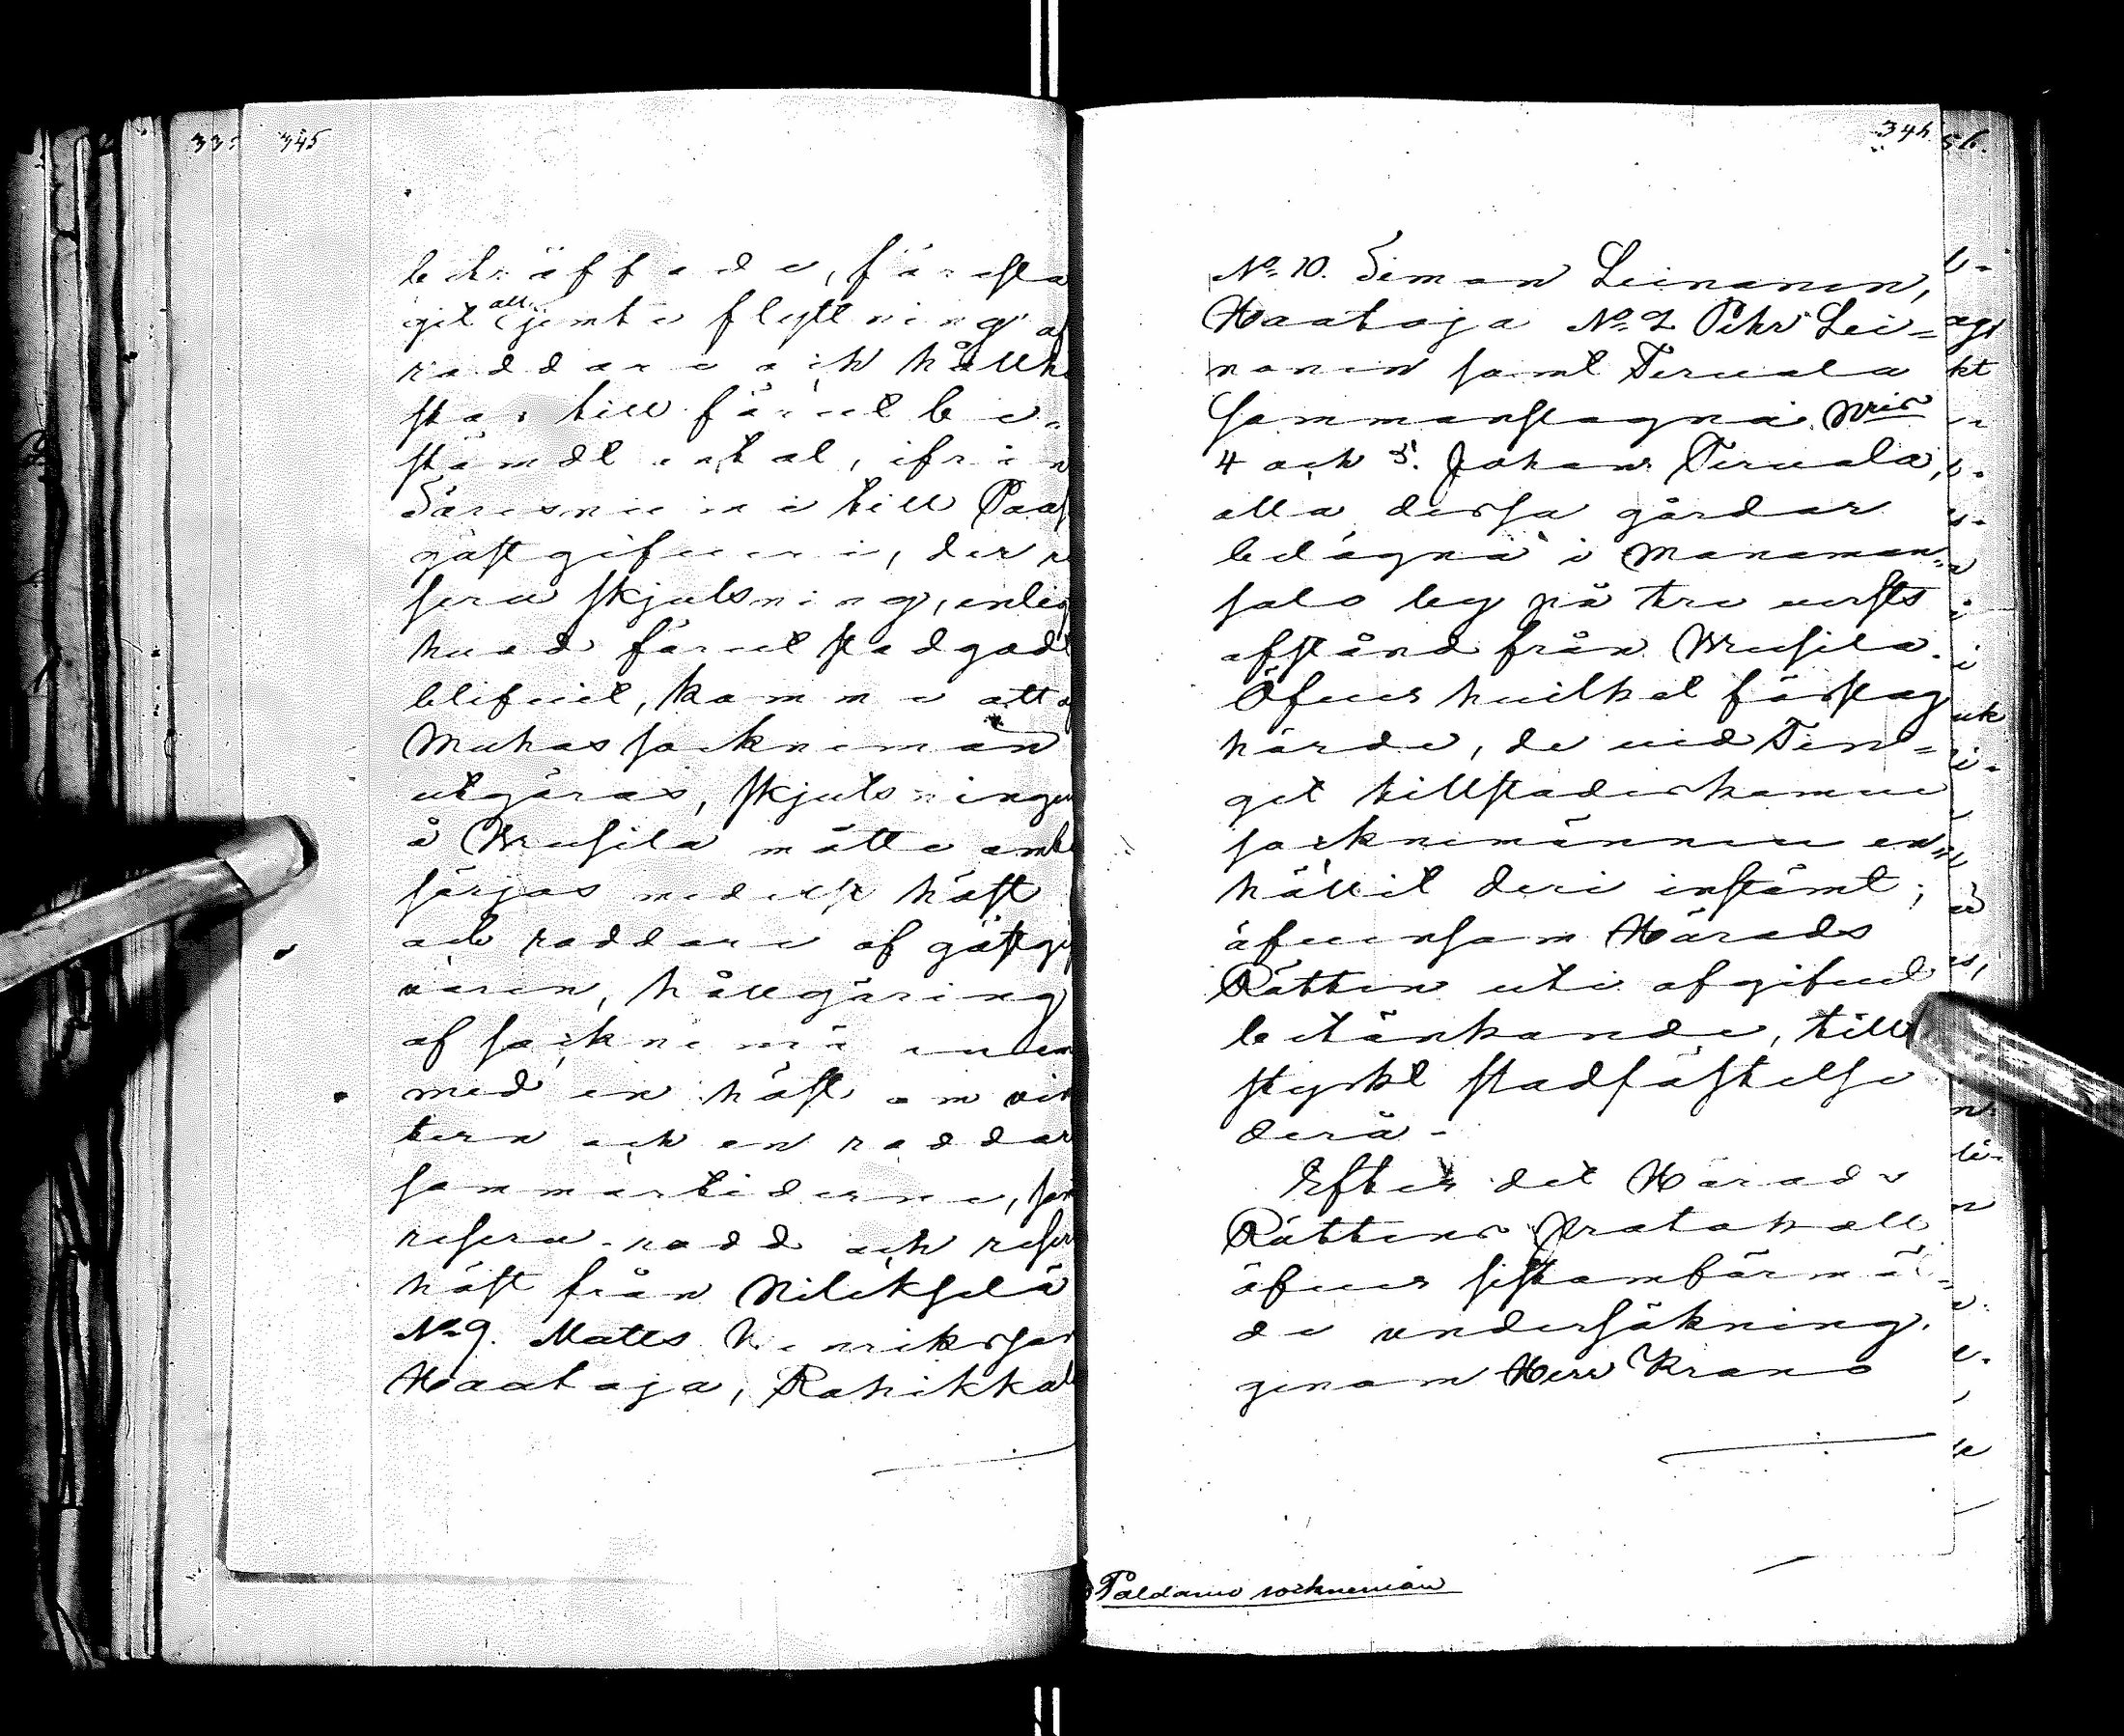 345
bekräffade,föresla
git att jemte flyttning af
roddare och hållhä
star till förut be-
stämdt antal, ifrån
Säresniemi till Paas
gästgifveri, der re
serv skjutsning, enlig
hvad förut stadgadt
blifvit, komme att af
Muhos socknemän
utgöras, skjutsningen
å Wuosila måtte ombe
sörjas medelst häst
och roddare af gästgif
varen, hållgöring
af socknemännen
med en häst om vin
tern och en roddar
sommartiderne, sam
reserv-rodd och reserv
häst från Nilikselä
No 9. Matts Henriksson
Haataja, Rahikkala
346
No 10. Simon Leinonen,
Haataja No 2 Pehr Lei=
nonen samt Teruala
Sammanslagna Nris
4 och 5. Johan Teruala,
alla dessa gårdar
belägna i Manaman=
salo by på tre versts
afstånd från Wuosila.
Öfver hvilket förslag
hörde, de vid Tin=
get tillstädeskomne
socknemännen en=
hällit deri instämt;
äfvensom Härads
Rätten uti afgifvet
betänkande, till
styrkt stadfästelse
derå-
Efter det Härads
Rättens Protokoll
öfver sistomförmäl=
de undersökning.
genom Herr Krono
Paldamo socknemän